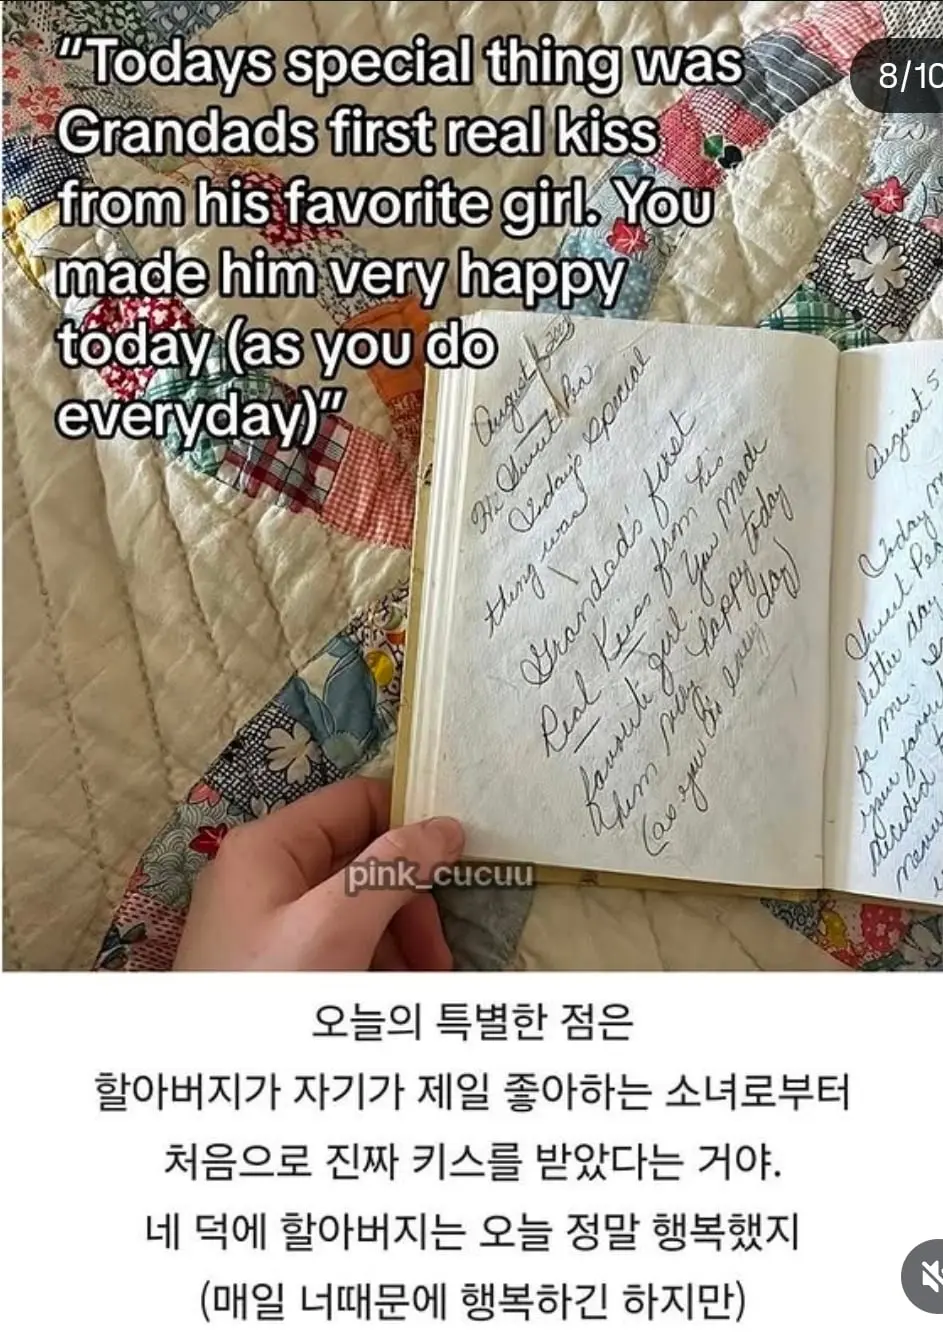 “Todays special thing was
Grandads first real kiss
from his favorite girl. You
made him very happy
today (as you do
everyday)”
8/10
August
Hi Sweet Pea
Today's special
thing was
Grandad's first
Real Kiss from his
favourite girl. You made
him very happy today
(as you do every day)
August 5
Today
Sweet Pea
letter day
for me.
your
decided
pink_cucuu
오늘의 특별한 점은
할아버지가 자기가 제일 좋아하는 소녀로부터
처음으로 진짜 키스를 받았다는 거야.
네 덕에 할아버지는 오늘 정말 행복했지
(매일 너때문에 행복하긴 하지만)